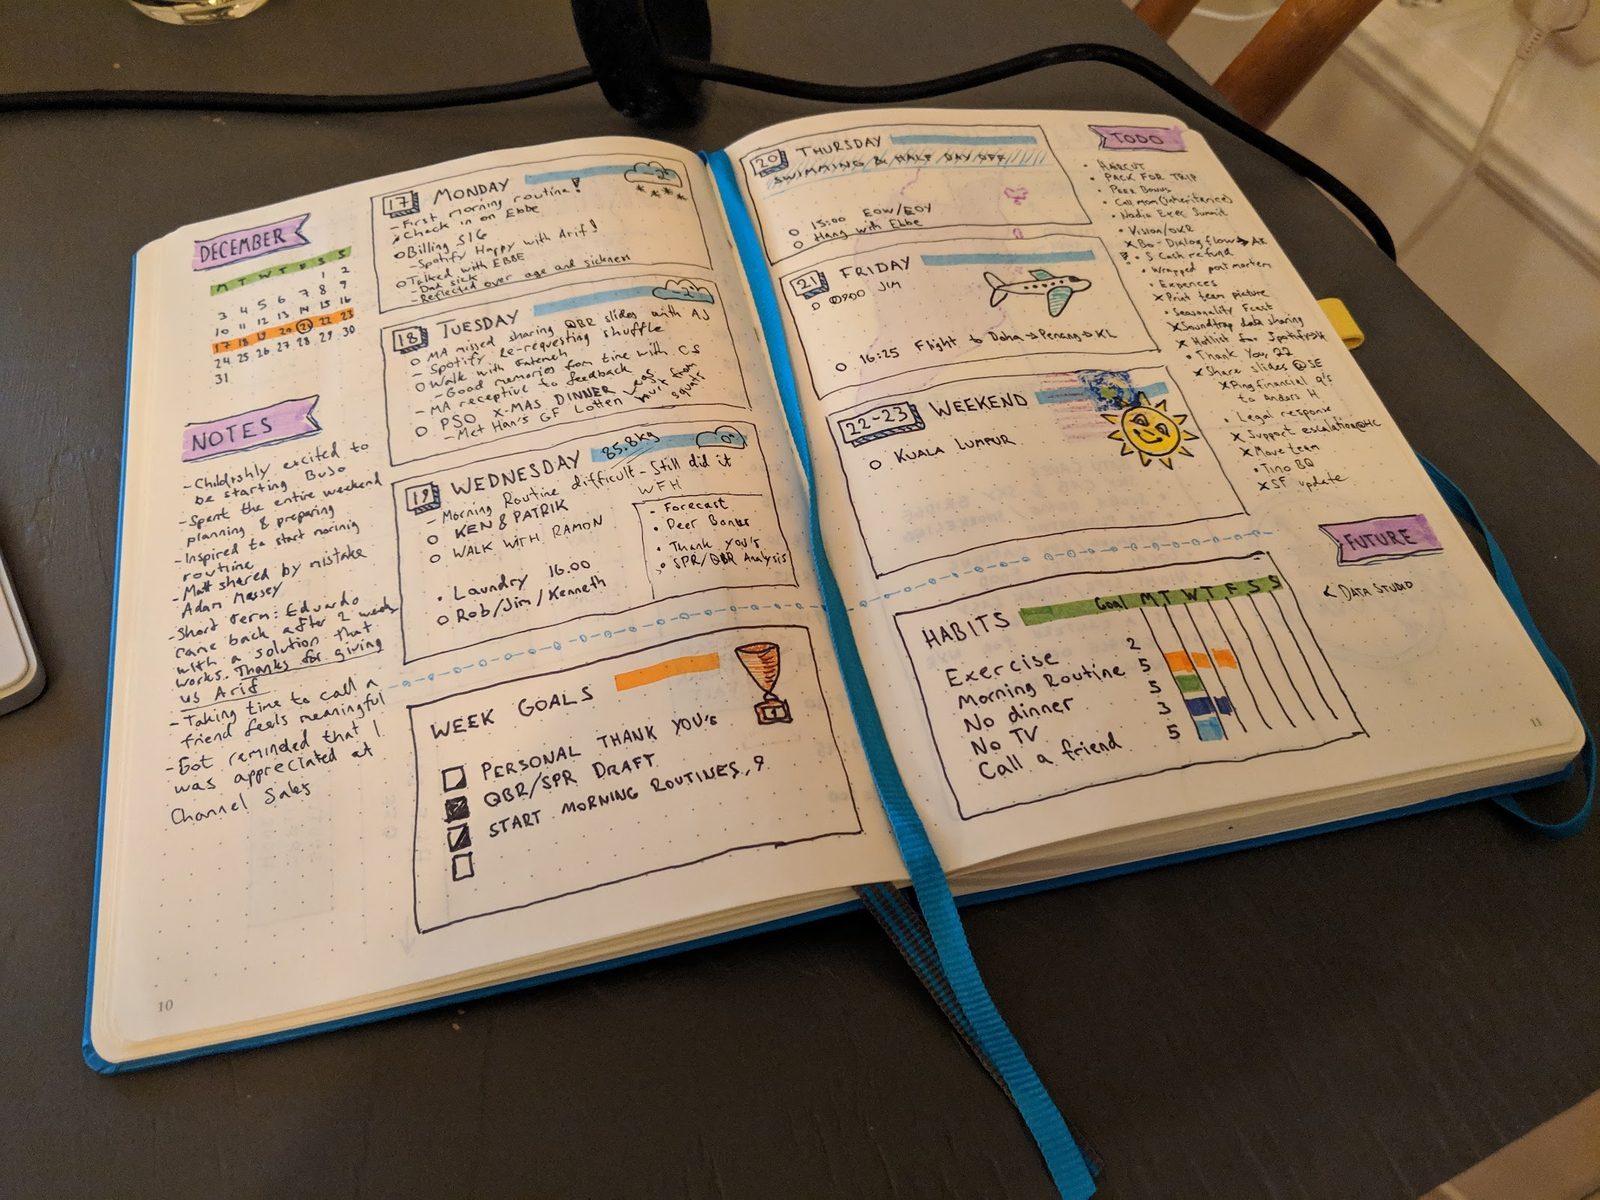 DECEMBER
M T W T F S S
1 2
3 4 5 6 7 8 9
10 11 12 13 14 15 16
17 18 19 20 21 22 23
24 25 26 27 28 29 30
31
NOTES
- Childishly excited to
be starting BuJo
- Spent the entire weekend
planning & preparing
- Inspired to start morinig
routine
- Matt shared by mistake
Adam Massey
- Short term: Eduardo
came back after 2 weeks
with a solution that
works. Thanks for giving
us Arif
- Taking time to call a
friend feels meaningful
- Got reminded that I
was appreciated at
Channel Sales
10
17 MONDAY
- First morning routine!
Check in on Ebbe
Billing SIG
- Spotify Happy with Arif!
Talked with EBBE
- Dad sick
- Reflected over age and sickness
18 TUESDAY -2°
MA missed sharing QBR slides with AJ
- Spotify re-requesting shuffle
Walk with Fatemeh
- Good memories from time with CS
- MA receptive to feedback
PSO X-MAS DINNER
- Met Han's GF Lotten
Legs
hurt from
squats
19 WEDNESDAY 85.8kg 0°
- Morning Routine difficult - Still did it
KEN & PATRIK
WALK WITH RAMON
• Laundry 16.00
Rob/Jim/Kenneth
WFH
- Forecast
• Peer Bonus
• Thank you's
• SPR/QBR Analysis
WEEK GOALS
PERSONAL THANK YOU's
QBR/SPR DRAFT
START MORNING ROUTINES, 9
20 THURSDAY
SWIMMING & HALF DAY OFF
15:00 EOW/EOY
Hang with Ebbe
21 FRIDAY
09:00 JIM
16:25 Flight to Doha → Penang → KL
22-23 WEEKEND
KUALA LUMPUR
HABITS Goal M T W T F S S
Exercise 2
Morning Routine 5
No dinner 5
No TV 3
Call a friend 5
TODO
• HAIRCUT
• PACK FOR TRIP
• Peer Bonus
• Call mom (inheritance)
• Nadia Exec Summit
• Vision/OKR
x Bo - Dialogflow → AE
• S Cash refund
• Wrapped post mortem
• Expences
x Print team picture
• Seasonality Feast
x Soundtrap data sharing
x Hotlist for Spotify
• Thank You, 22
x Share slides @SE
x Ping financial q's
to Anders H
• Legal response
x Support escalation@HC
x Move team
• Tino BQ
x SF update
FUTURE
< DATA STUDIO
11